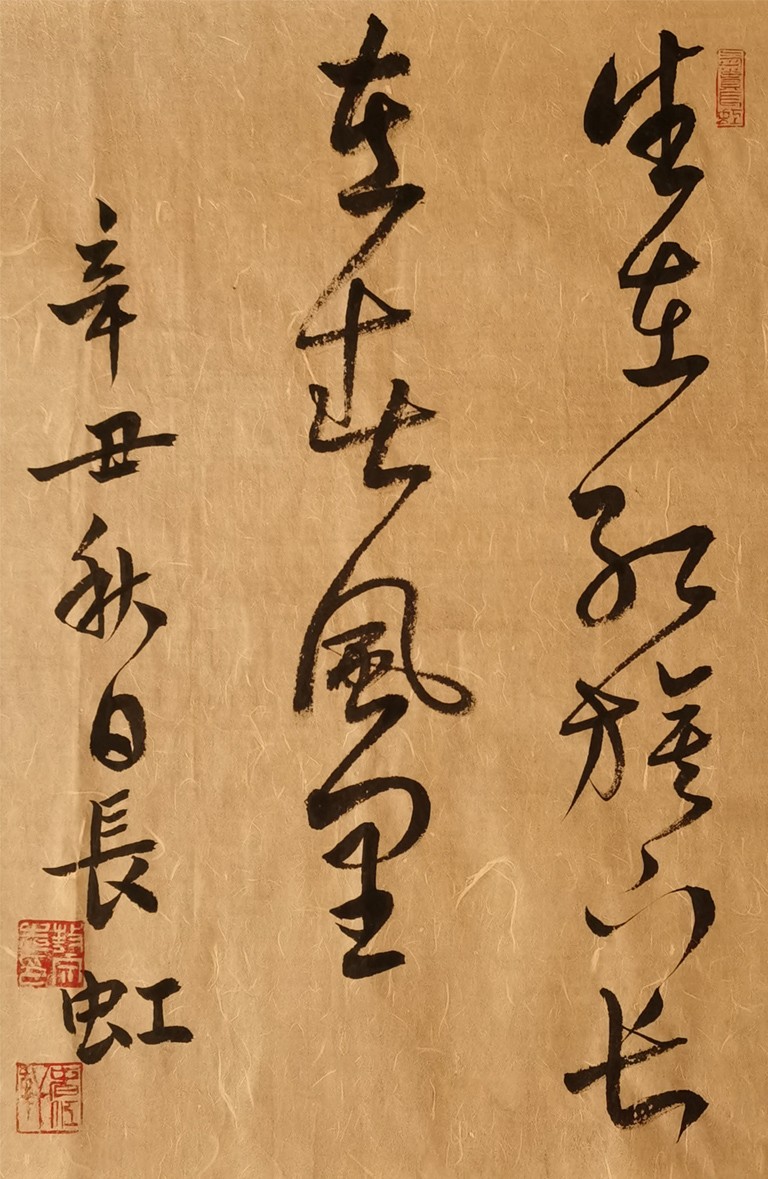 生在红旗下长
在春风里
辛丑秋日長虹